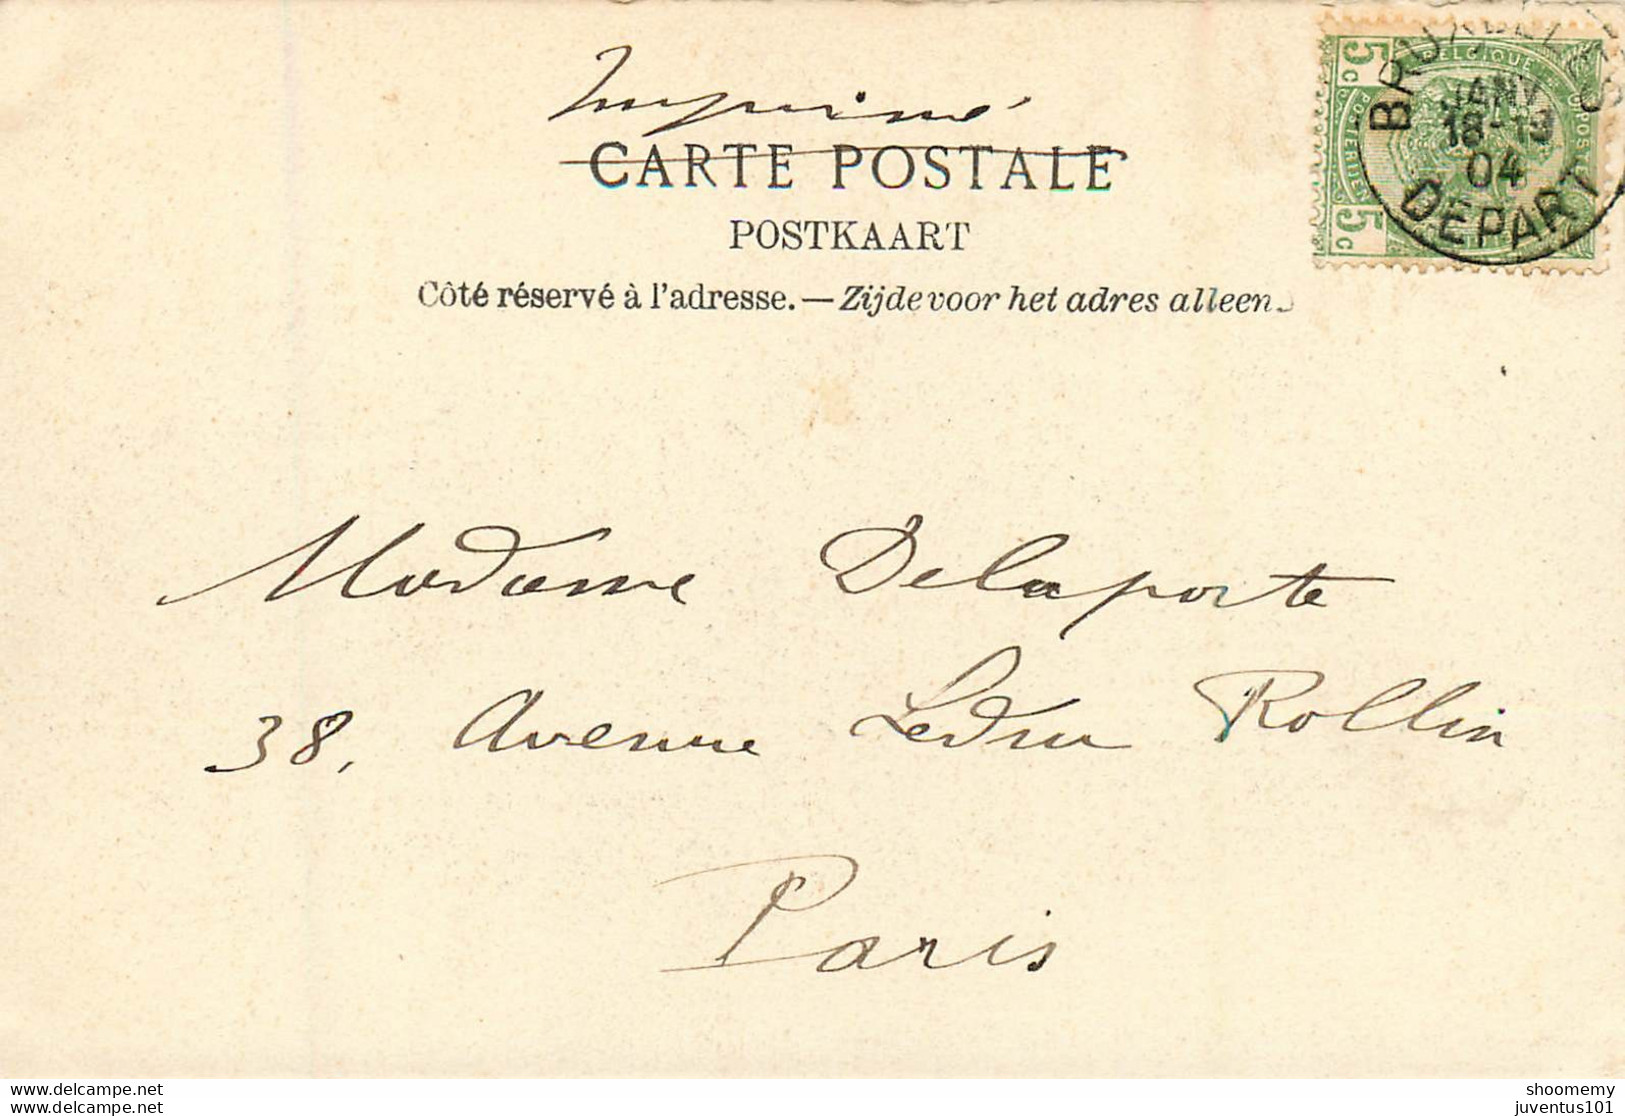 Imprimé
CARTE POSTALE
POSTKAART
Côté réservé à l'adresse. — Zijde voor het adres alleen.
BRUXELLES
JANV
18-19
04
DEPART
5 c
5 c
BELGIQUE
Madame Delaporte
38, Avenue Ledru Rollin
Paris
delcampe.net
delcampe.net
shoomemy
juventus101